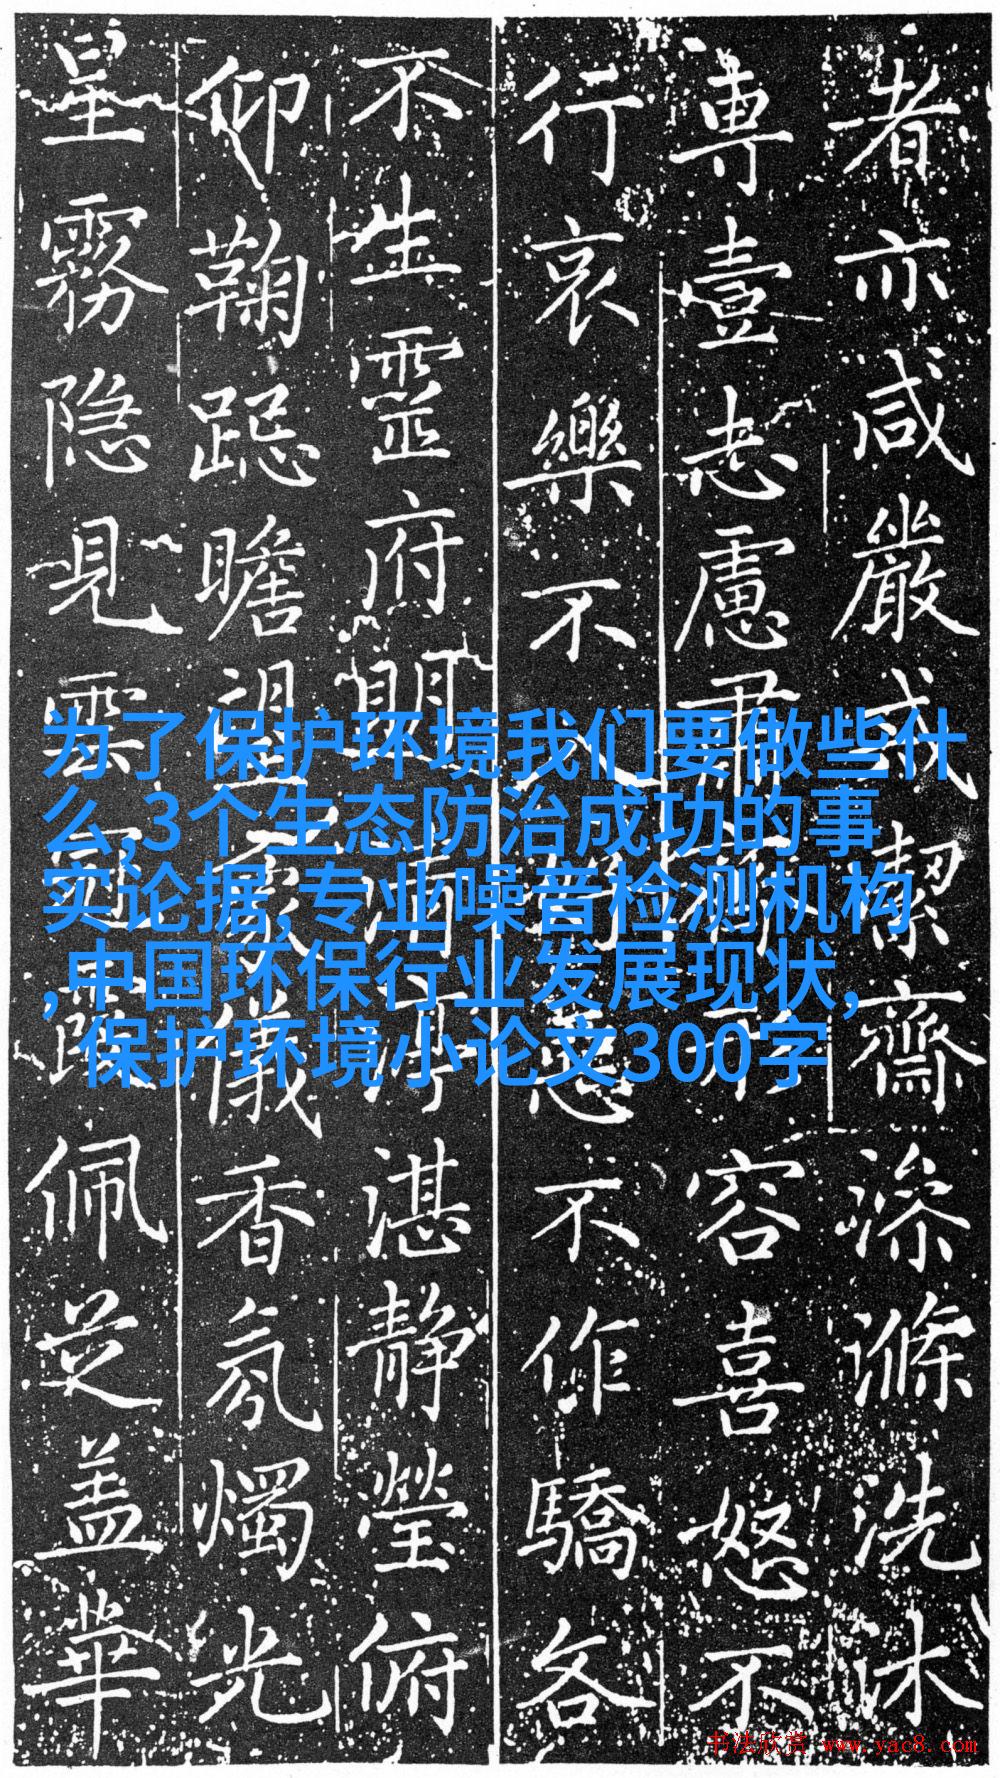 者亦咸嚴或潔齋滌滌洗沐
專壹志慮肅容喜怒不
行哀樂不不作驕各
不生靈府湛静瑩俯
仰鞠跽瞻儀香氛燭光
星霧隐見雲佩芝盖華
为了保护环境我们要做些什
么,3个生态防治成功的事
实论据,专业噪音检测机构
,中国环保行业发展现状,
保护环境小论文300字
书法欣赏 www.yac8.com